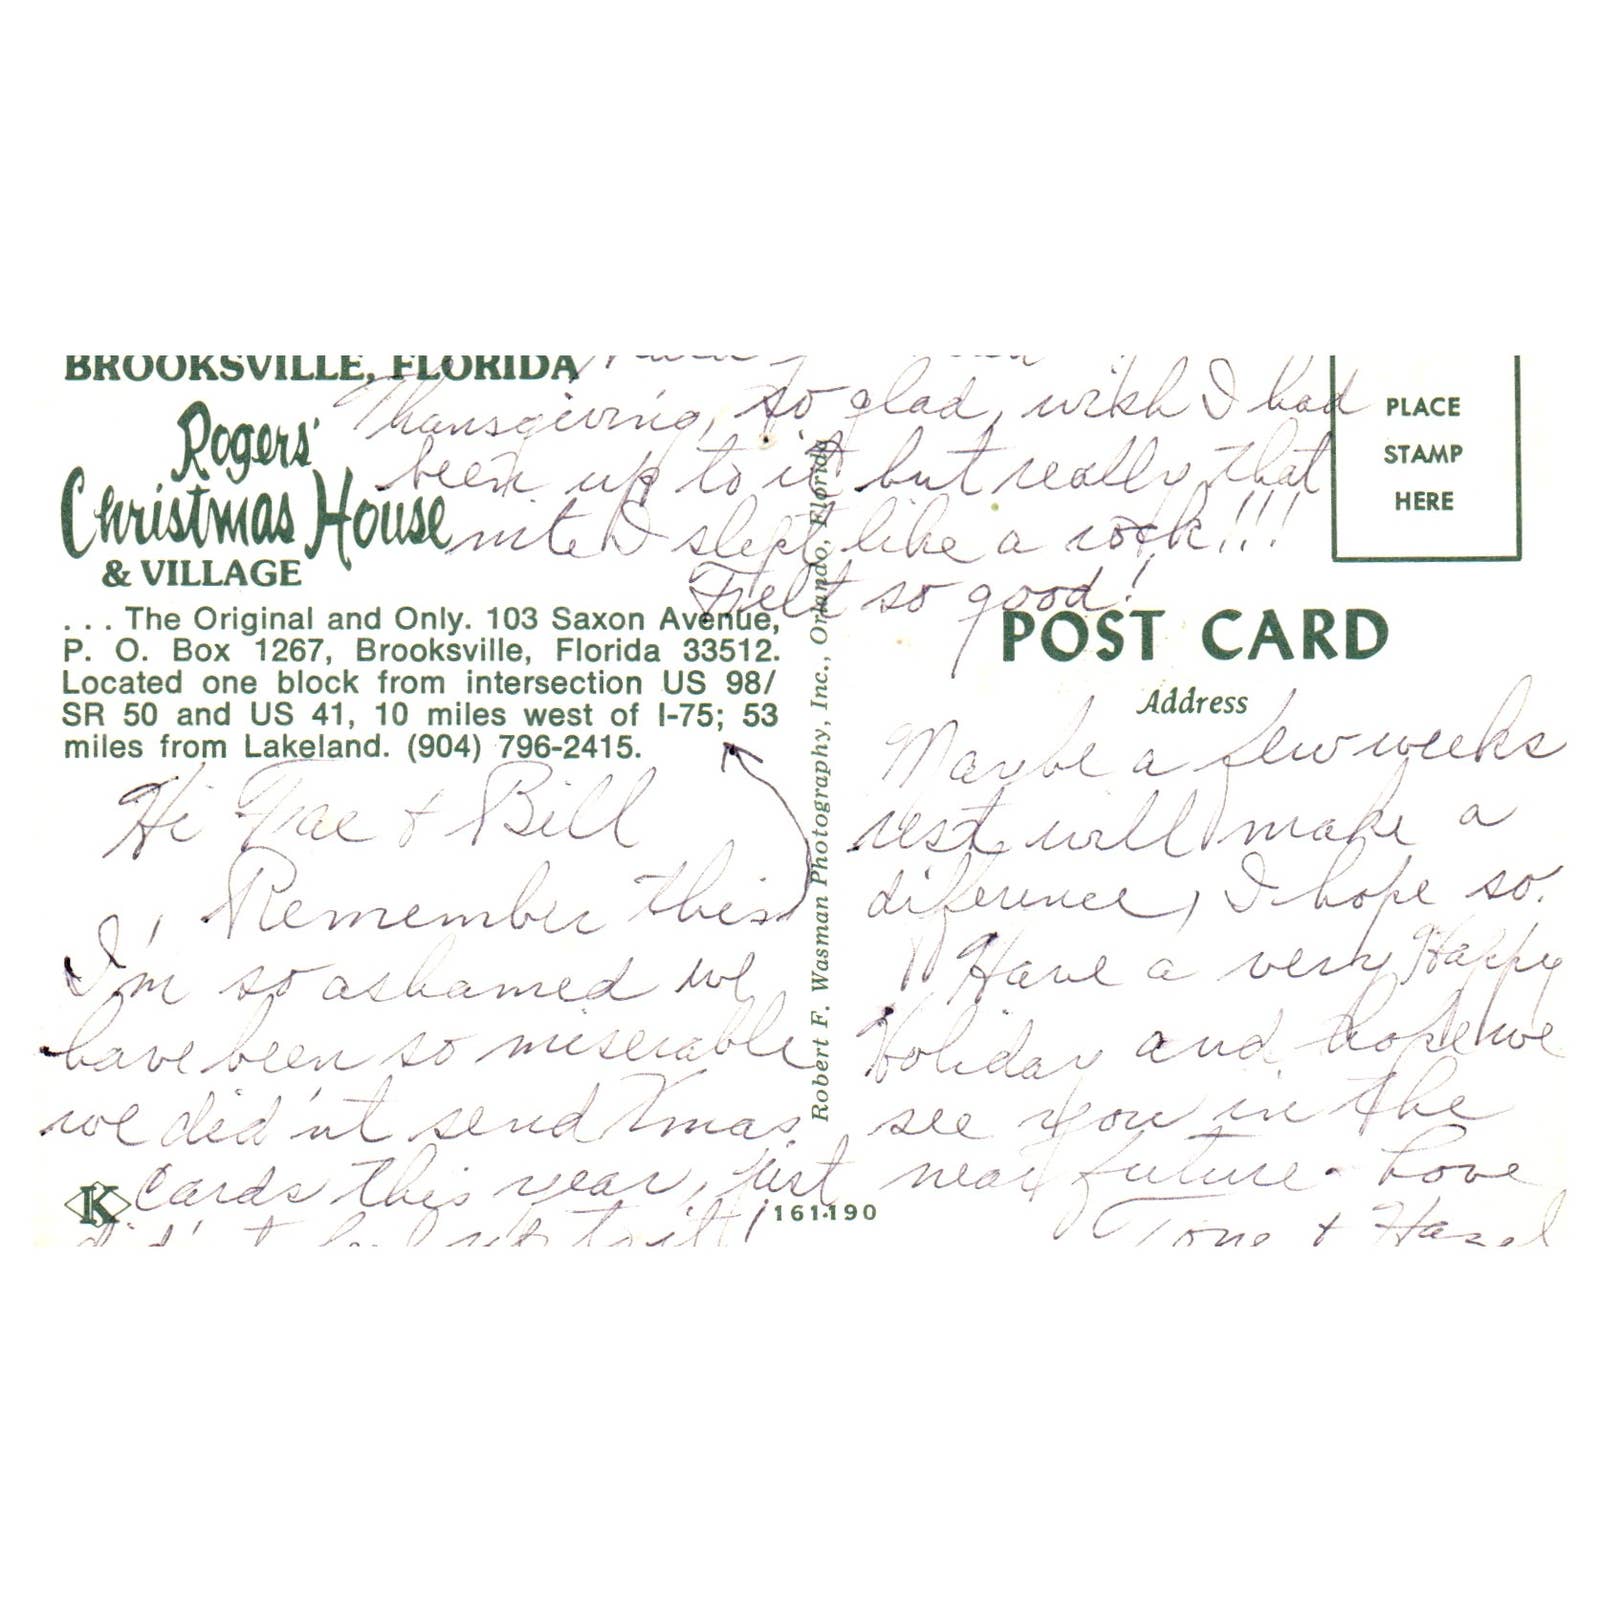 BROOKSVILLE, FLORIDA
Rogers'
Christmas House
& VILLAGE
. . . The Original and Only. 103 Saxon Avenue,
P. O. Box 1267, Brooksville, Florida 33512.
Located one block from intersection US 98/
SR 50 and US 41, 10 miles west of I-75; 53
miles from Lakeland. (904) 796-2415.
Hi Fae + Bill
Remember this
I'm so ashamed we
have been so miserable
we did'nt send Xmas
cards this year, just
did't feel up to it!
161190
Robert F. Wasman Photography, Inc., Orlando, Florida
Thansgiving, so glad, wish I had
been up to it but really that
nite I slept like a rock!!!
Felt so good!
PLACE
STAMP
HERE
POST CARD
Address
Maybe a few weeks
rest will make a
diference, I hope so.
Have a very Happy
Holiday and hope we
see you in the
near future - Love
Tony + Hazel